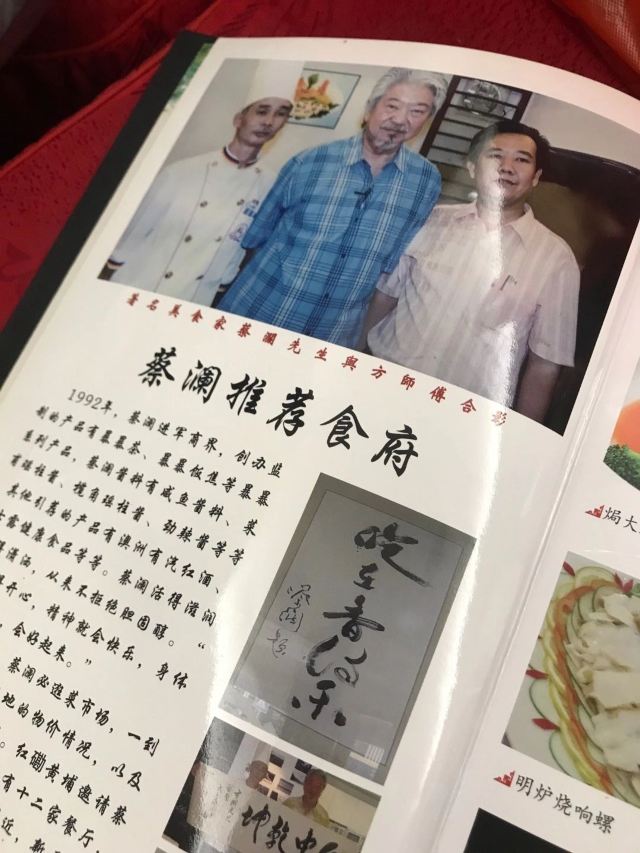 著名美食家蔡瀾先生與方師傅合影
蔡澜推荐食府
1992年，蔡澜进军商界，创办监
制的产品有暴暴茶、暴暴饭焦等暴暴
系列产品，蔡澜酱料有咸鱼酱料、菜
有瑶柱酱、榄角瑶柱酱、劲辣酱等等
其他引荐的产品有澳洲有汽红酒、
露健康食品等等。蔡澜活得滋润
潇洒，从来不拒绝胆固醇。“
开心，精神就会快乐，身体
，会好起来。”
蔡澜必逛菜市场，一到
地的物价情况，以及
。红磡黄埔邀请蔡
有十二家餐厅
近，新
吃在香
蔡瀾題
坤乾中
焗大
明炉烧响螺